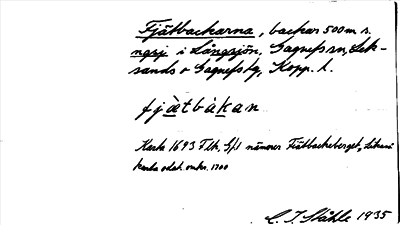 Fjätbackarna, backar 500 m s.
ngrj i Långsjön, Gagnefs sn, Lek-
sands o Gagnefs tg, Kopp. l.
fjätbàkan
Karta 1693 T Lk, S/1 nämner Fiätbackeberget, Likaså
karta odat. omkr. 1700
C. I. Ståhle 1935